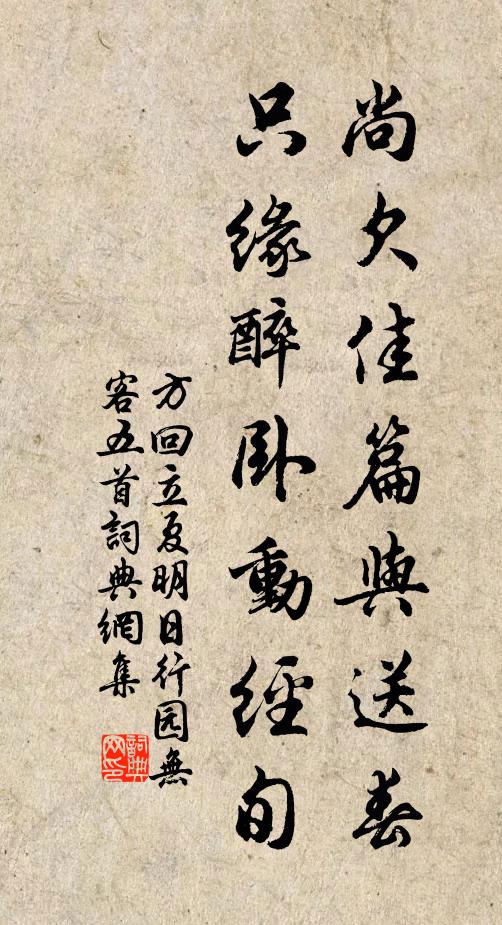 尚欠佳篇與送春
只缘醉卧動經旬
方回立夏明日行园無
客五首詞典網集
詞典
网印